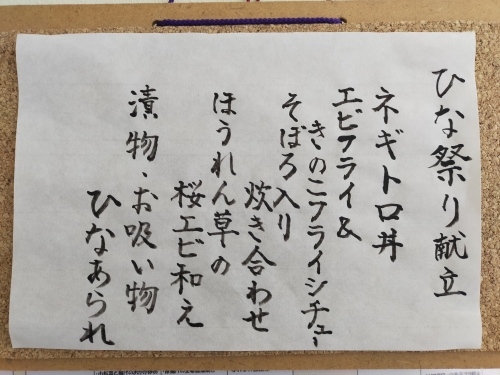 ひな祭り献立
ネギトロ丼
エビフライ&
きのこフライシチュー
そぼろ入り
炊き合わせ
ほうれん草の
桜エビ和え
漬物、お吸い物
ひなあられ